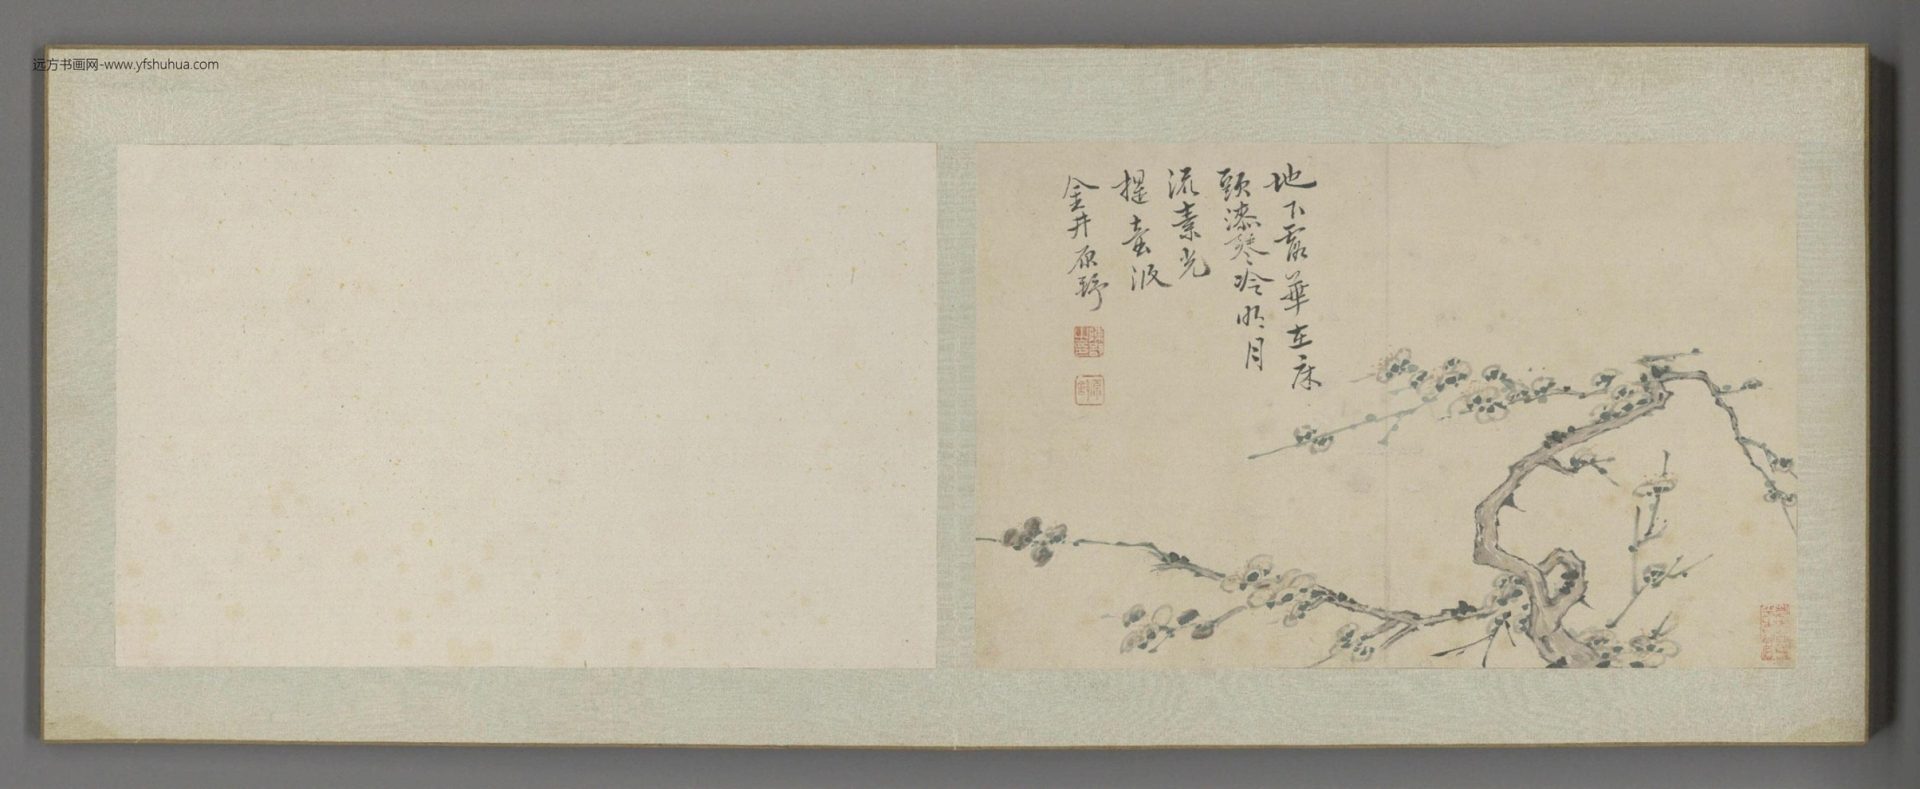 远方书画网-www.yfshuhua.com
地下霜華在床
頭漆琴冷明月
流素光
提壺汲
金井原舒